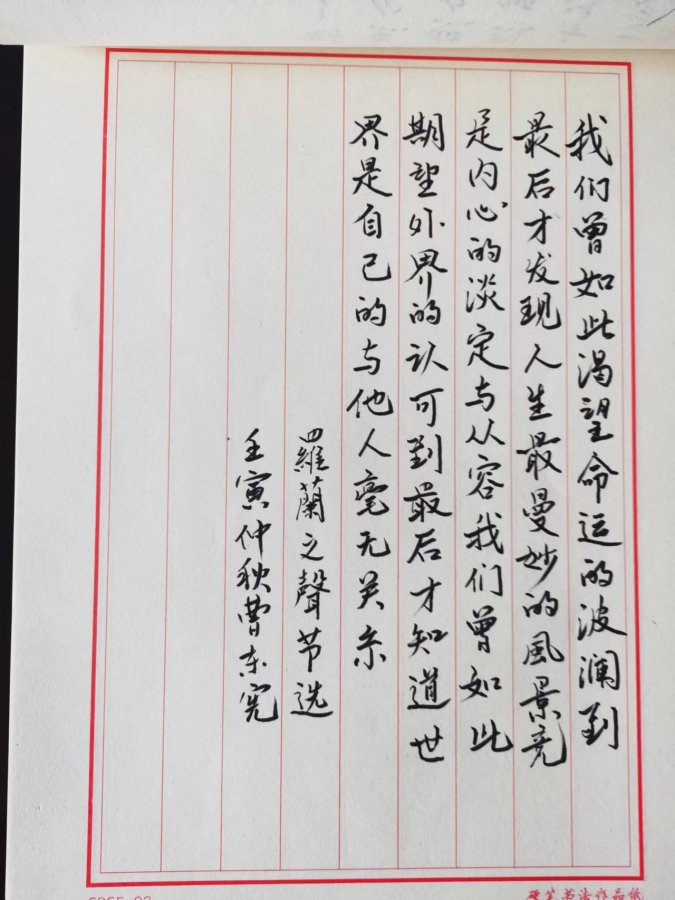 我们曾如此渴望命运的波澜到
最后才发现人生最曼妙的風景竟
是内心的淡定与从容我们曾如此
期望外界的认可到最后才知道世
界是自己的与他人毫无关系
羅蘭之聲节选
壬寅仲秋曹东宪
硬笔书法作品纸